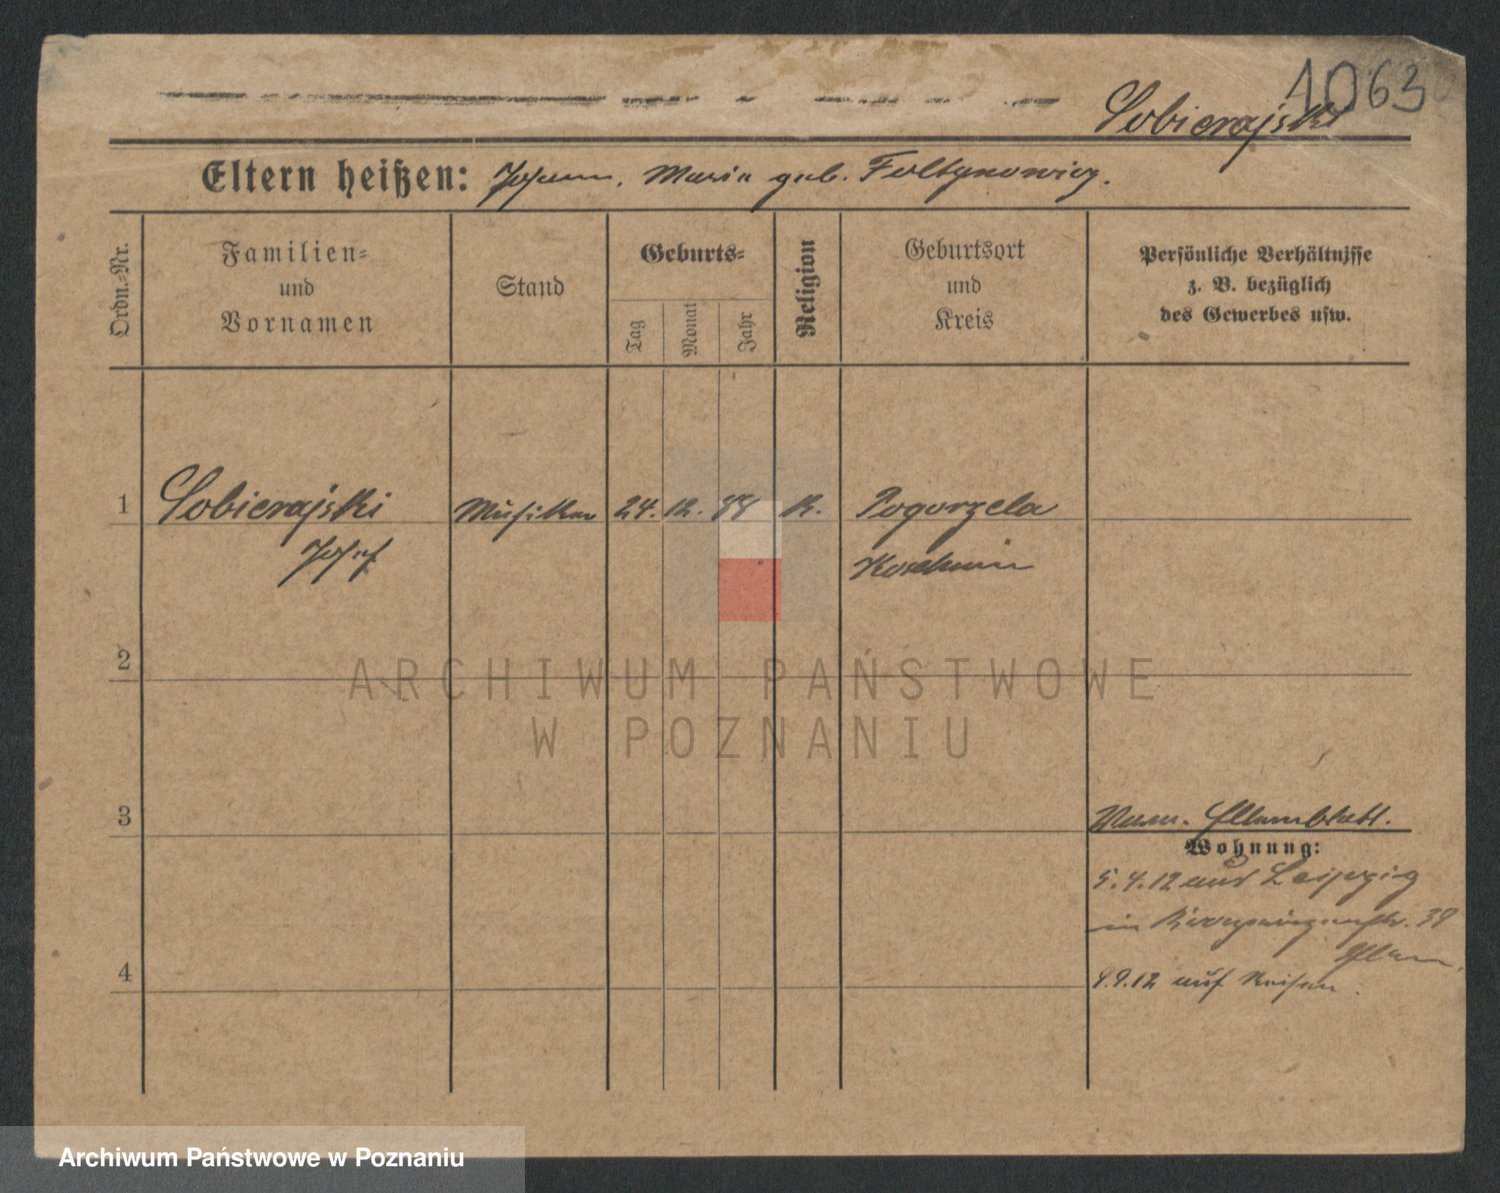 1063
Sobierajski
Eltern heißen: Johann, Maria geb. Foltynowicz.
Ordn.-Nr.
Familien-
und
Vornamen
Stand
Geburts-
Tag
Monat
Jahr
Religion
Geburtsort
und
Kreis
Persönliche Verhältnisse
z. B. bezüglich
des Gewerbes usw.
1
Sobierajski Musiker 24. 12. 88 K. Pogorzela
Josef Koschmin
2
ARCHIWUM PAŃSTWOWE
W POZNANIU
3
Elternblatt.
Wohnung:
5.4.12 aus Leipzig
in 38
Eltern.
9.12 auf Reisen.
4
Archiwum Państwowe w Poznaniu